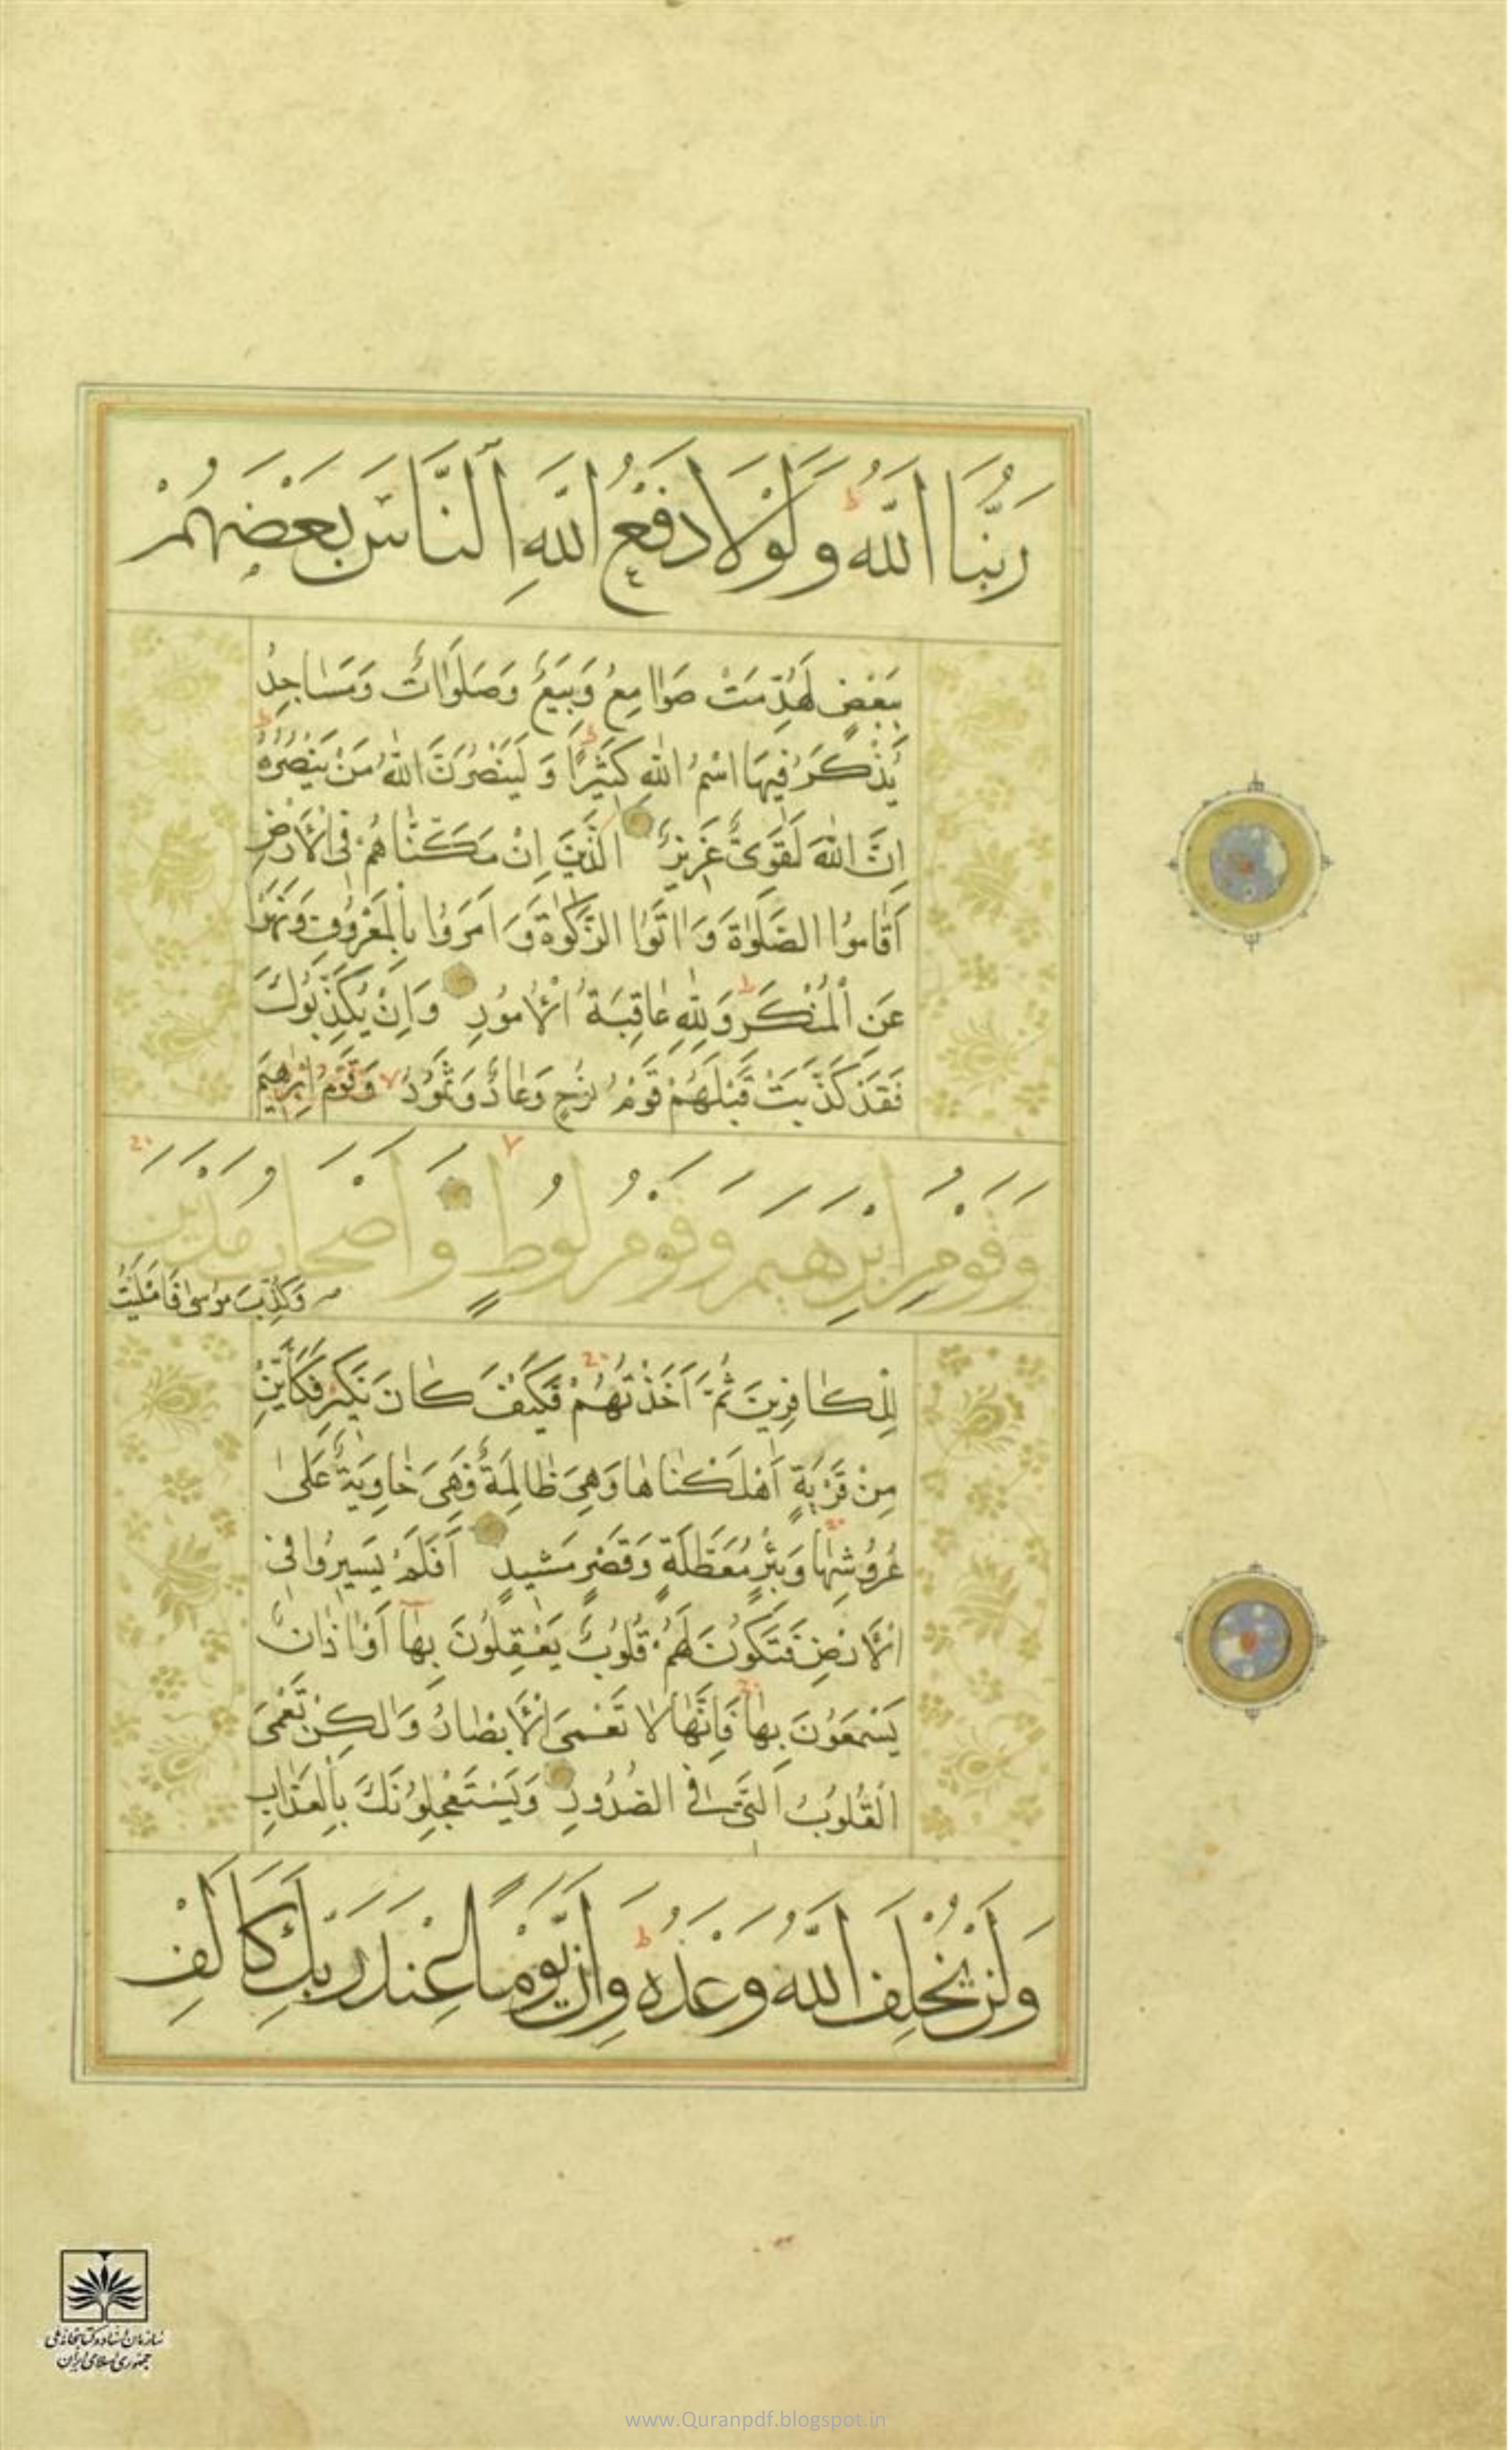 رَبُّنَا اللَّهُ وَلَوْلَا دَفْعُ اللَّهِ النَّاسَ بَعْضَهُمْ
بِبَعْضٍ لَهُدِّمَتْ صَوَامِعُ وَبِيَعٌ وَصَلَوَاتٌ وَمَسَاجِدُ
يُذْكَرُ فِيهَا اسْمُ اللَّهِ كَثِيرًا وَلَيَنْصُرَنَّ اللَّهُ مَنْ يَنْصُرُهُ
إِنَّ اللَّهَ لَقَوِيٌّ عَزِيزٌ الَّذِينَ إِنْ مَكَّنَّاهُمْ فِي الْأَرْضِ
أَقَامُوا الصَّلَوٰةَ وَاٰتَوُا الزَّكَوٰةَ وَأَمَرُوا بِالْمَعْرُوفِ وَنَهَوْا
عَنِ الْمُنْكَرِ وَلِلَّهِ عَاقِبَةُ الْأُمُورِ وَإِنْ يُكَذِّبُوكَ
فَقَدْ كَذَّبَتْ قَبْلَهُمْ قَوْمُ نُوحٍ وَعَادٌ وَثَمُودُ وَقَوْمُ إِبْرٰهِيمَ
وَقَوْمُ إِبْرٰهِيمَ وَقَوْمُ لُوطٍ وَأَصْحَابُ مَدْيَنَ
وَكُذِّبَ مُوسَىٰ فَأَمْلَيْتُ
لِلْكَافِرِينَ ثُمَّ أَخَذْتُهُمْ فَكَيْفَ كَانَ نَكِيرِ فَكَأَيِّنْ
مِنْ قَرْيَةٍ أَهْلَكْنَاهَا وَهِيَ ظَالِمَةٌ فَهِيَ خَاوِيَةٌ عَلَىٰ
عُرُوشِهَا وَبِئْرٍ مُعَطَّلَةٍ وَقَصْرٍ مَشِيدٍ أَفَلَمْ يَسِيرُوا فِي
الْأَرْضِ فَتَكُونَ لَهُمْ قُلُوبٌ يَعْقِلُونَ بِهَا أَوْ اٰذَانٌ
يَسْمَعُونَ بِهَا فَإِنَّهَا لَا تَعْمَى الْأَبْصَارُ وَلٰكِنْ تَعْمَى
الْقُلُوبُ الَّتِي فِي الصُّدُورِ وَيَسْتَعْجِلُونَكَ بِالْعَذَابِ
وَلَنْ يُخْلِفَ اللَّهُ وَعْدَهُ وَإِنَّ يَوْمًا عِنْدَ رَبِّكَ كَأَلْفِ
سازمان اسناد و کتابخانه ملی
جمهوری اسلامی ایران
www.Quranpdf.blogspot.in